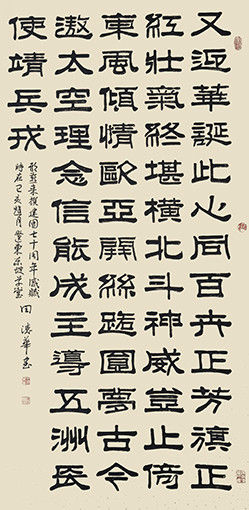 又迎華誕此心同百卉正芳旗正
紅壯氣終堪橫北斗神威豈止倚
東風傾情歐亞開絲路圓夢古今
遨太空理念信能成主導五洲長
使靖兵戎
撰建國七十周年感賦
時在己亥月遼東
田華書